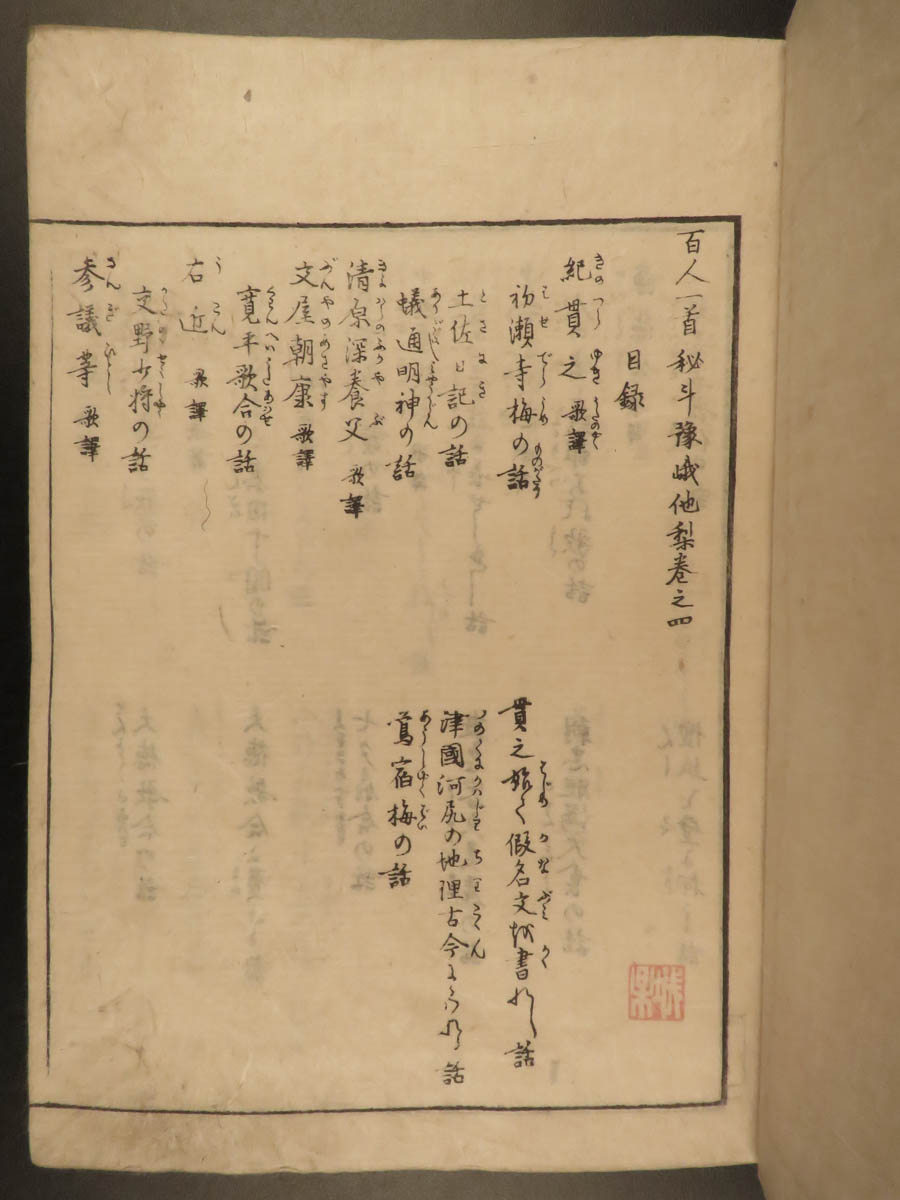 百人一首秘斗豫峨他梨巻之四
目録
紀貫之 歌譯
初瀬寺梅の話
貫之始て假名文越書れし話
土佐日記の話
津國河尻の地理古今ことなる話
蟻通明神の話
鴬宿梅の話
清原深養父 歌譯
文屋朝康 歌譯
寛平歌合の話
右近 歌譯
交野少将の話
参議等 歌譯